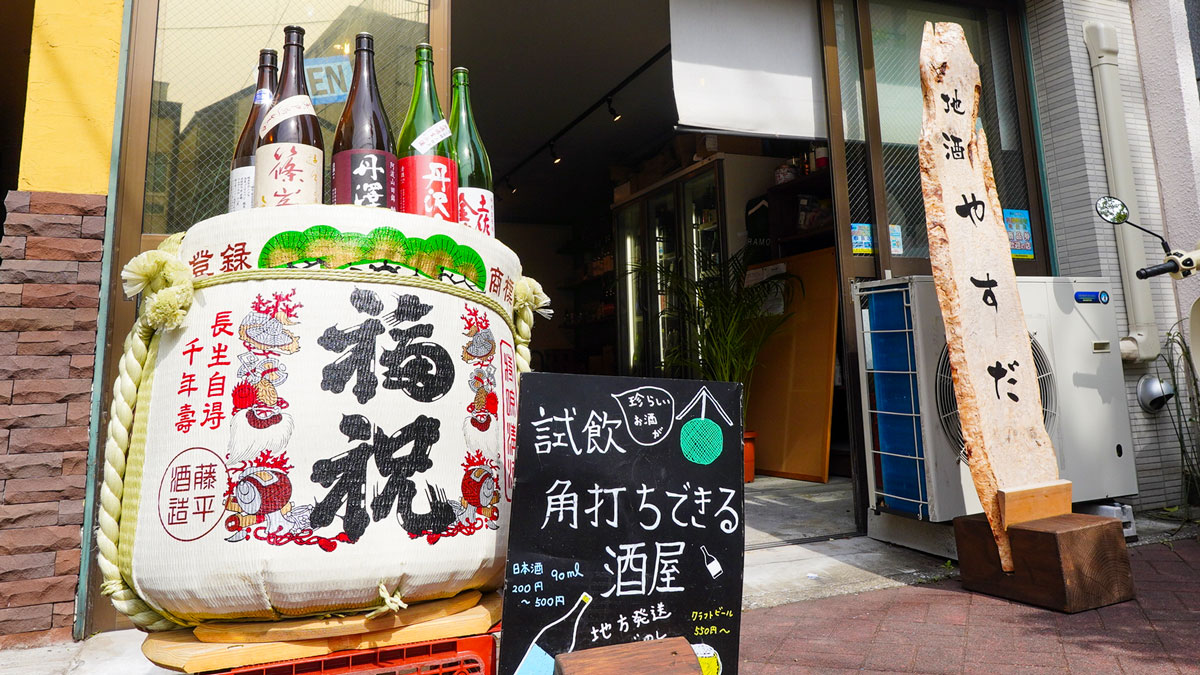 EN
篠峯
丹澤山
丹沢山
登録
商標
福祝
長生自得
千年壽
藤平
酒造
地酒 やすだ
珍らしい
お酒が
試飲
角打ちできる
酒屋
日本酒 90ml
200円
～500円
地方発送
クラフトビール
550円～